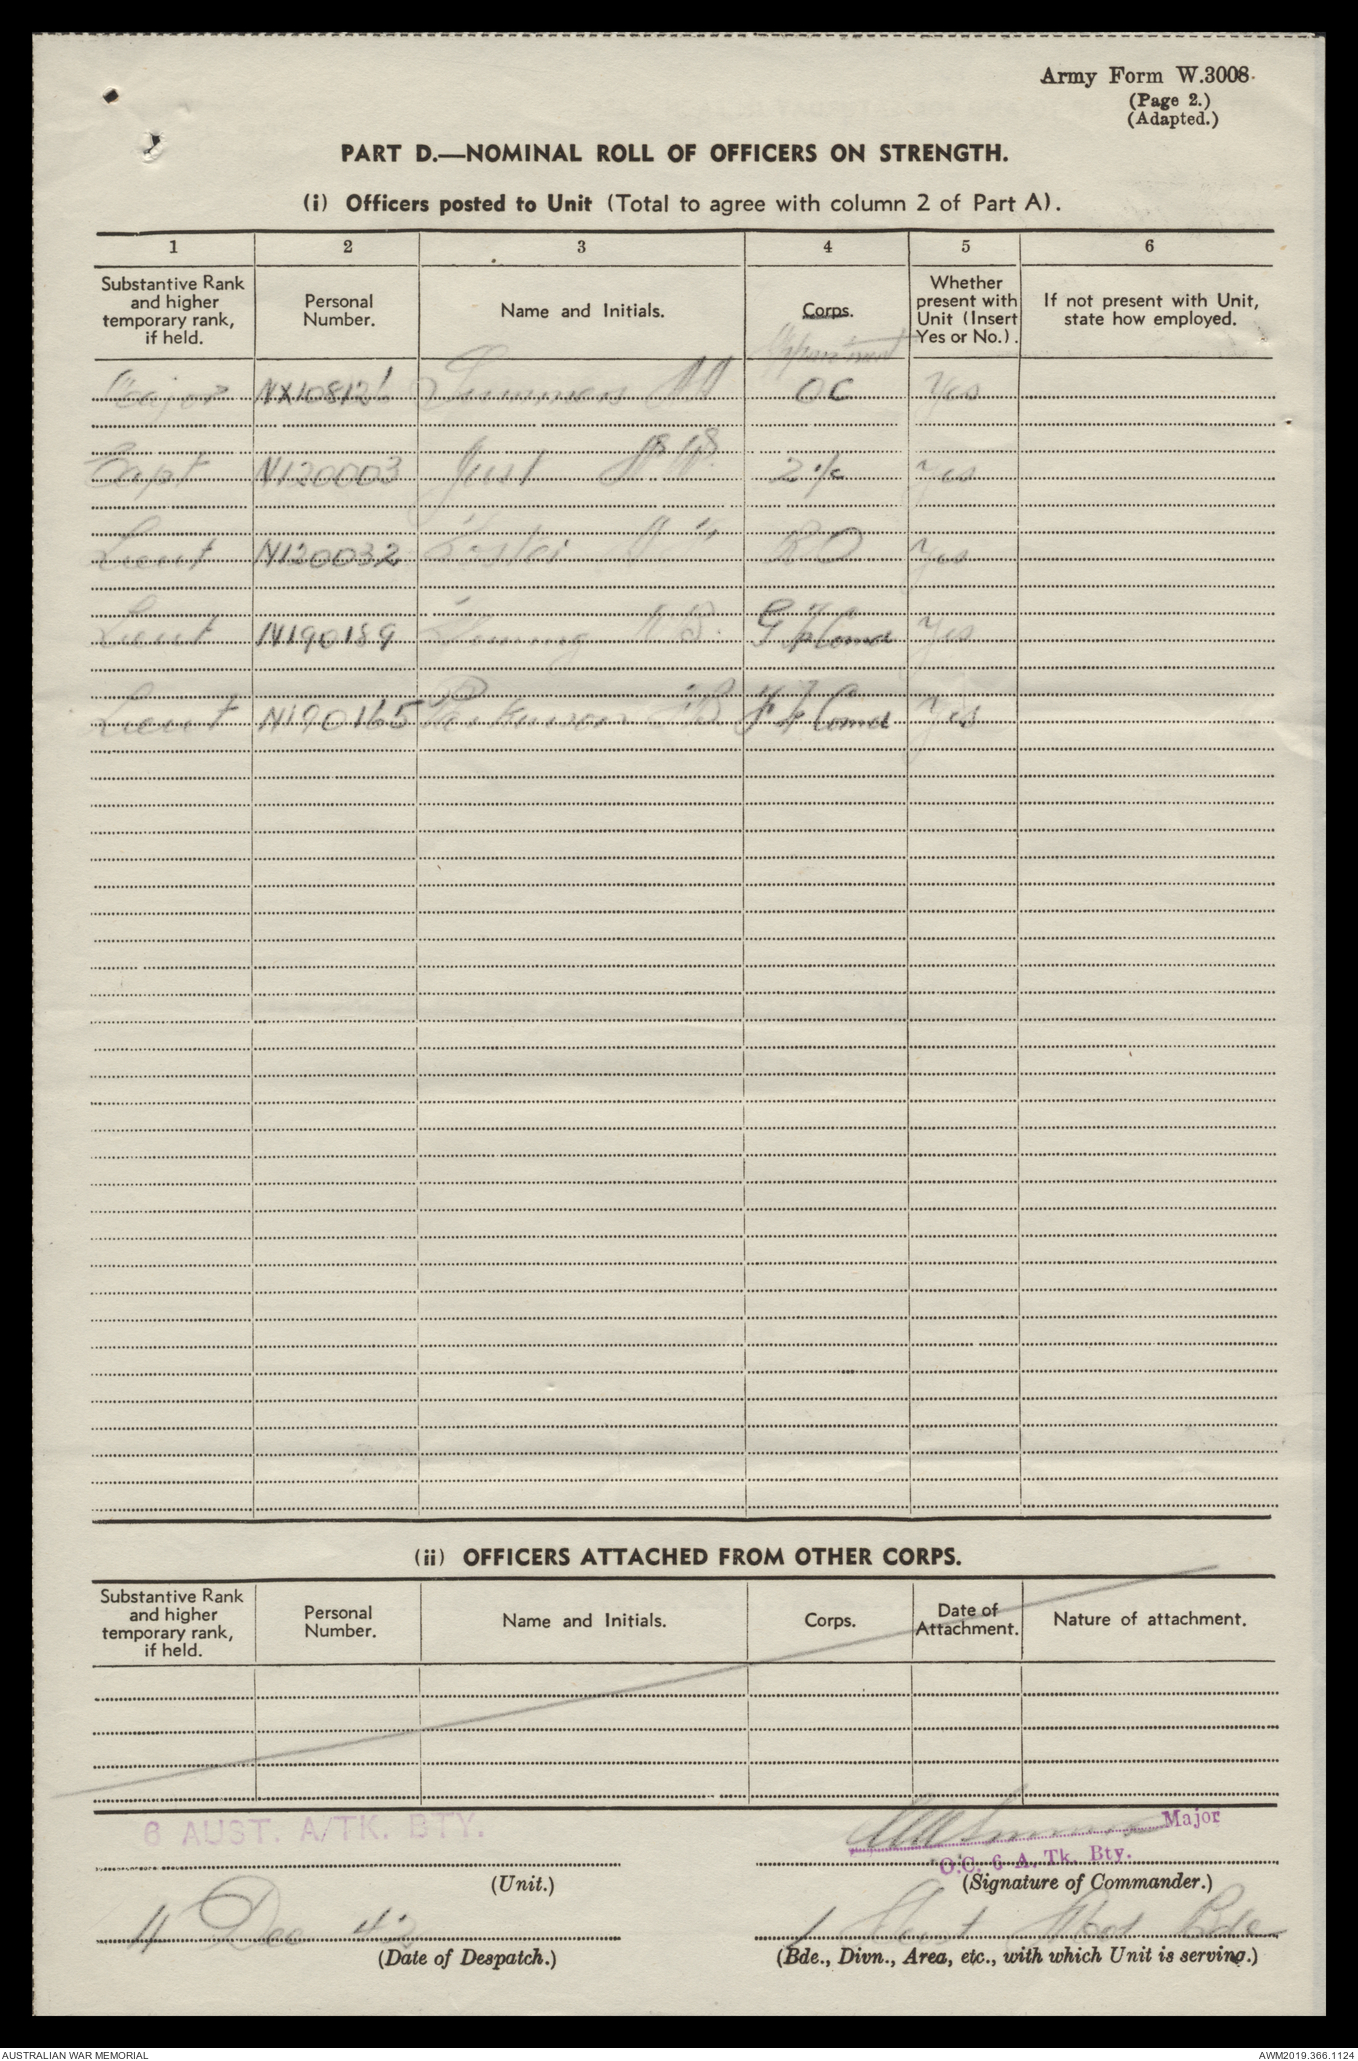 Army Form W.3008.
(Page 2.)
(Adapted.)
PART D.—NOMINAL ROLL OF OFFICERS ON STRENGTH.
(i) Officers posted to Unit (Total to agree with column 2 of Part A).
1 2 3 4 5 6
Substantive Rank and higher temporary rank, if held. Personal Number. Name and Initials. Corps. Whether present with Unit (Insert Yes or No.). If not present with Unit, state how employed.
Appointment
Major NX108126 Summers OC Yes
Capt N120003 Just 2 i/c Yes
Lieut N120032 Yes
Lieut N190189 Yes
Lieut N190165 Parkinson Yes
(ii) OFFICERS ATTACHED FROM OTHER CORPS.
Substantive Rank and higher temporary rank, if held. Personal Number. Name and Initials. Corps. Date of Attachment. Nature of attachment.
6 AUST. A/TK. BTY. Major
O.C. 6 A. Tk. Bty.
(Unit.) (Signature of Commander.)
11 Dec 42 1 Aust Bde
(Date of Despatch.) (Bde., Divn., Area, etc., with which Unit is serving.)
AUSTRALIAN WAR MEMORIAL AWM2019.366.1124